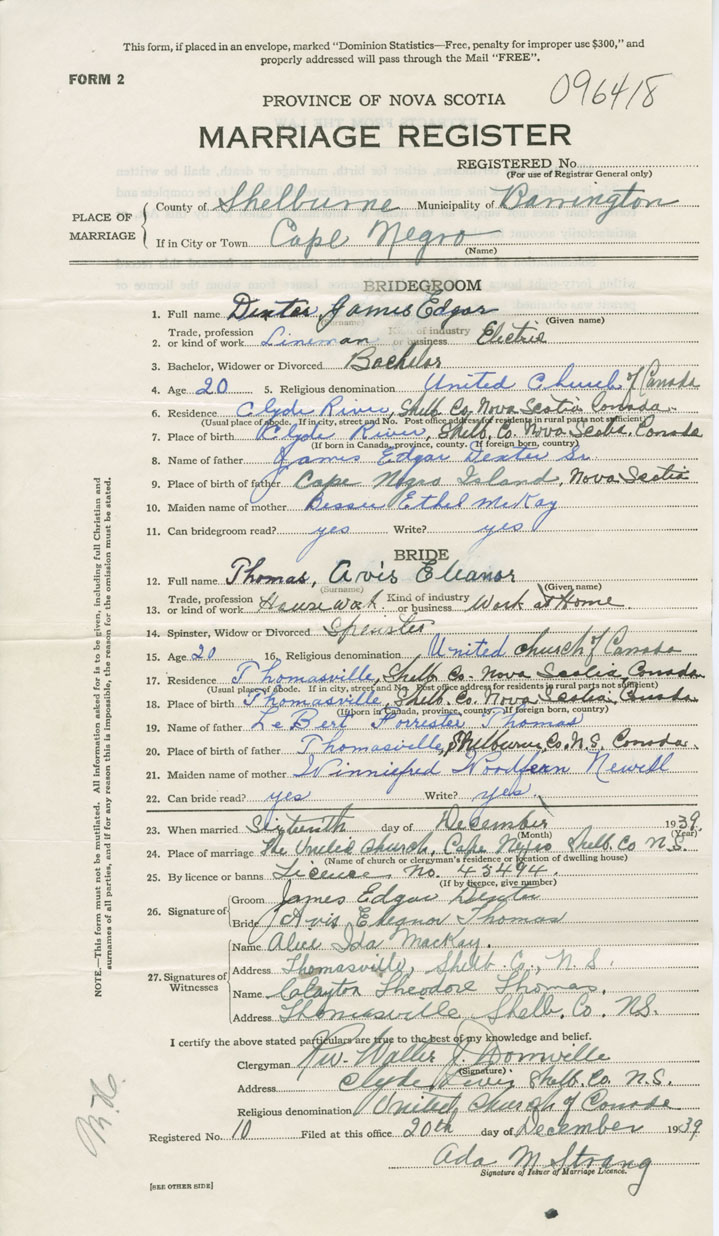 This form, if placed in an envelope, marked "Dominion Statistics—Free, penalty for improper use $300," and
properly addressed will pass through the Mail "FREE".
FORM 2
096418
PROVINCE OF NOVA SCOTIA
MARRIAGE REGISTER
REGISTERED No.
(For use of Registrar General only)
PLACE OF MARRIAGE
County of Shelburne Municipality of Barrington
If in City or Town Cape Negro
(Name)
BRIDEGROOM
1. Full name Dexter, James Edgar
(Surname) (Given name)
2. Trade, profession or kind of work Lineman Kind of industry or business Electric
3. Bachelor, Widower or Divorced Bachelor
4. Age 20 5. Religious denomination United Church of Canada
6. Residence Clyde River, Shelb. Co. Nova Scotia Canada
(Usual place of abode. If in city, street and No. Post office address for residents in rural parts not sufficient)
7. Place of birth Clyde River, Shelb. Co. Nova Scotia, Canada
(If born in Canada, province, county, If foreign born, country)
8. Name of father James Edgar Dexter Sr.
9. Place of birth of father Cape Negro Island, Nova Scotia
10. Maiden name of mother Bessie Ethel McKay
11. Can bridegroom read? yes Write? yes
BRIDE
12. Full name Thomas, Avis Eleanor
(Surname) (Given name)
13. Trade, profession or kind of work House Work Kind of industry or business Work at Home.
14. Spinster, Widow or Divorced Spinster
15. Age 20 16. Religious denomination United church of Canada
17. Residence Thomasville, Shelb. Co. Nova Scotia Canada
(Usual place of abode. If in city, street and No. Post office address for residents in rural parts not sufficient)
18. Place of birth Thomasville, Shelb. Co. Nova Scotia, Canada
(If born in Canada, province, county, If foreign born, country)
19. Name of father LeBert Forrester Thomas
20. Place of birth of father Thomasville, Shelburne, Co. N.S. Canada.
21. Maiden name of mother Winniefred Newell
22. Can bride read? yes Write? yes.
23. When married Sixteenth day of December 1939.
(Month) (Year)
24. Place of marriage The United Church, Cape Negro Shelb. Co N.S.
(Name of church or clergyman's residence or location of dwelling house)
25. By licence or banns Licence No. 43494.
(If by licence, give number)
26. Signature of
Groom James Edgar Dexter
Bride Avis Eleanor Thomas
27. Signatures of Witnesses
Name Alice Ida MacKay.
Address Thomasville, Shelb. Co., N.S.
Name Clayton Theodore Thomas.
Address Thomasville Shelb. Co. NS.
I certify the above stated particulars are true to the best of my knowledge and belief.
Clergyman Rev. Walter J. Domville
(Signature)
Address Clyde River Shelb. Co. N.S.
Religious denomination United Church of Canada
Registered No. 10 Filed at this office 20th day of December 1939
Ada M Strang
Signature of Issuer of Marriage Licence.
[SEE OTHER SIDE]
NOTE.—This form must not be mutilated. All information asked for is to be given, including full Christian and
surnames of all parties, and if for any reason this is impossible, the reason for the omission must be stated.